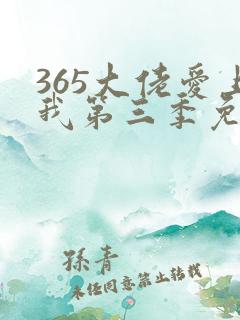 365大佬爱上
我第三季免
孫青
未经同意禁止转载